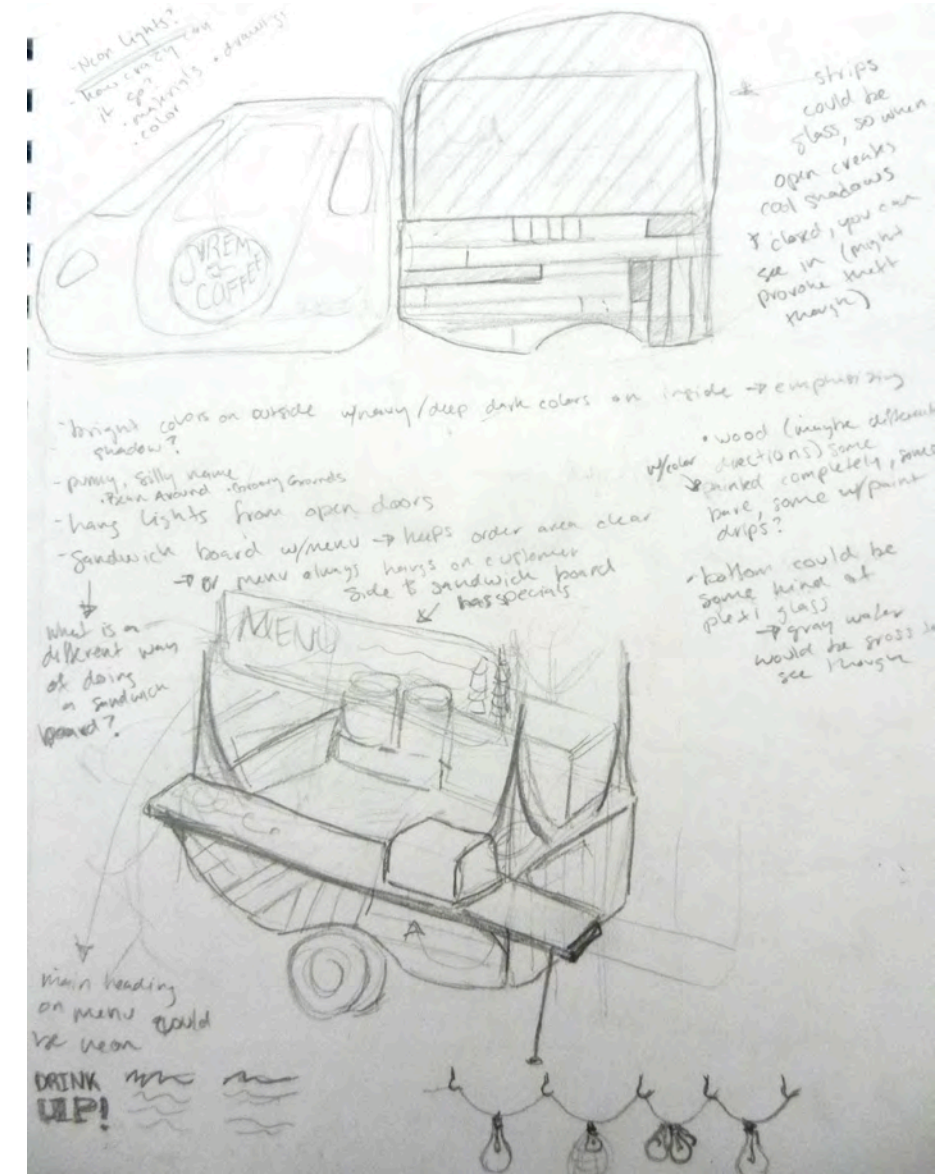 -Neon Lights?
-How crazy can
it go?
• materials • drawings
• color
SUREM
COFFEE
strips
could be
glass, so when
open creates
cool shadows
& closed, you can
see in (might
provoke theft
though)
-bright colors on outside w/heavy/deep dark colors on inside → emphasizing
shadow?
-punny, silly name
• Bean Around • Groovy Grounds
-hang lights from open doors
-Sandwich board w/menu → keeps order area clear
→ or menu always hangs on customer
side & sandwich board
has specials
• wood (maybe different
w/color directions) some
painted completely, some
bare, some w/paint
drips?
-bottom could be
some kind of
plexi glass
→ gray water
would be gross to
see though
what is a
different way
of doing
a sandwich
board?
MENU
main heading
on menu could
be neon
DRINK
UP!